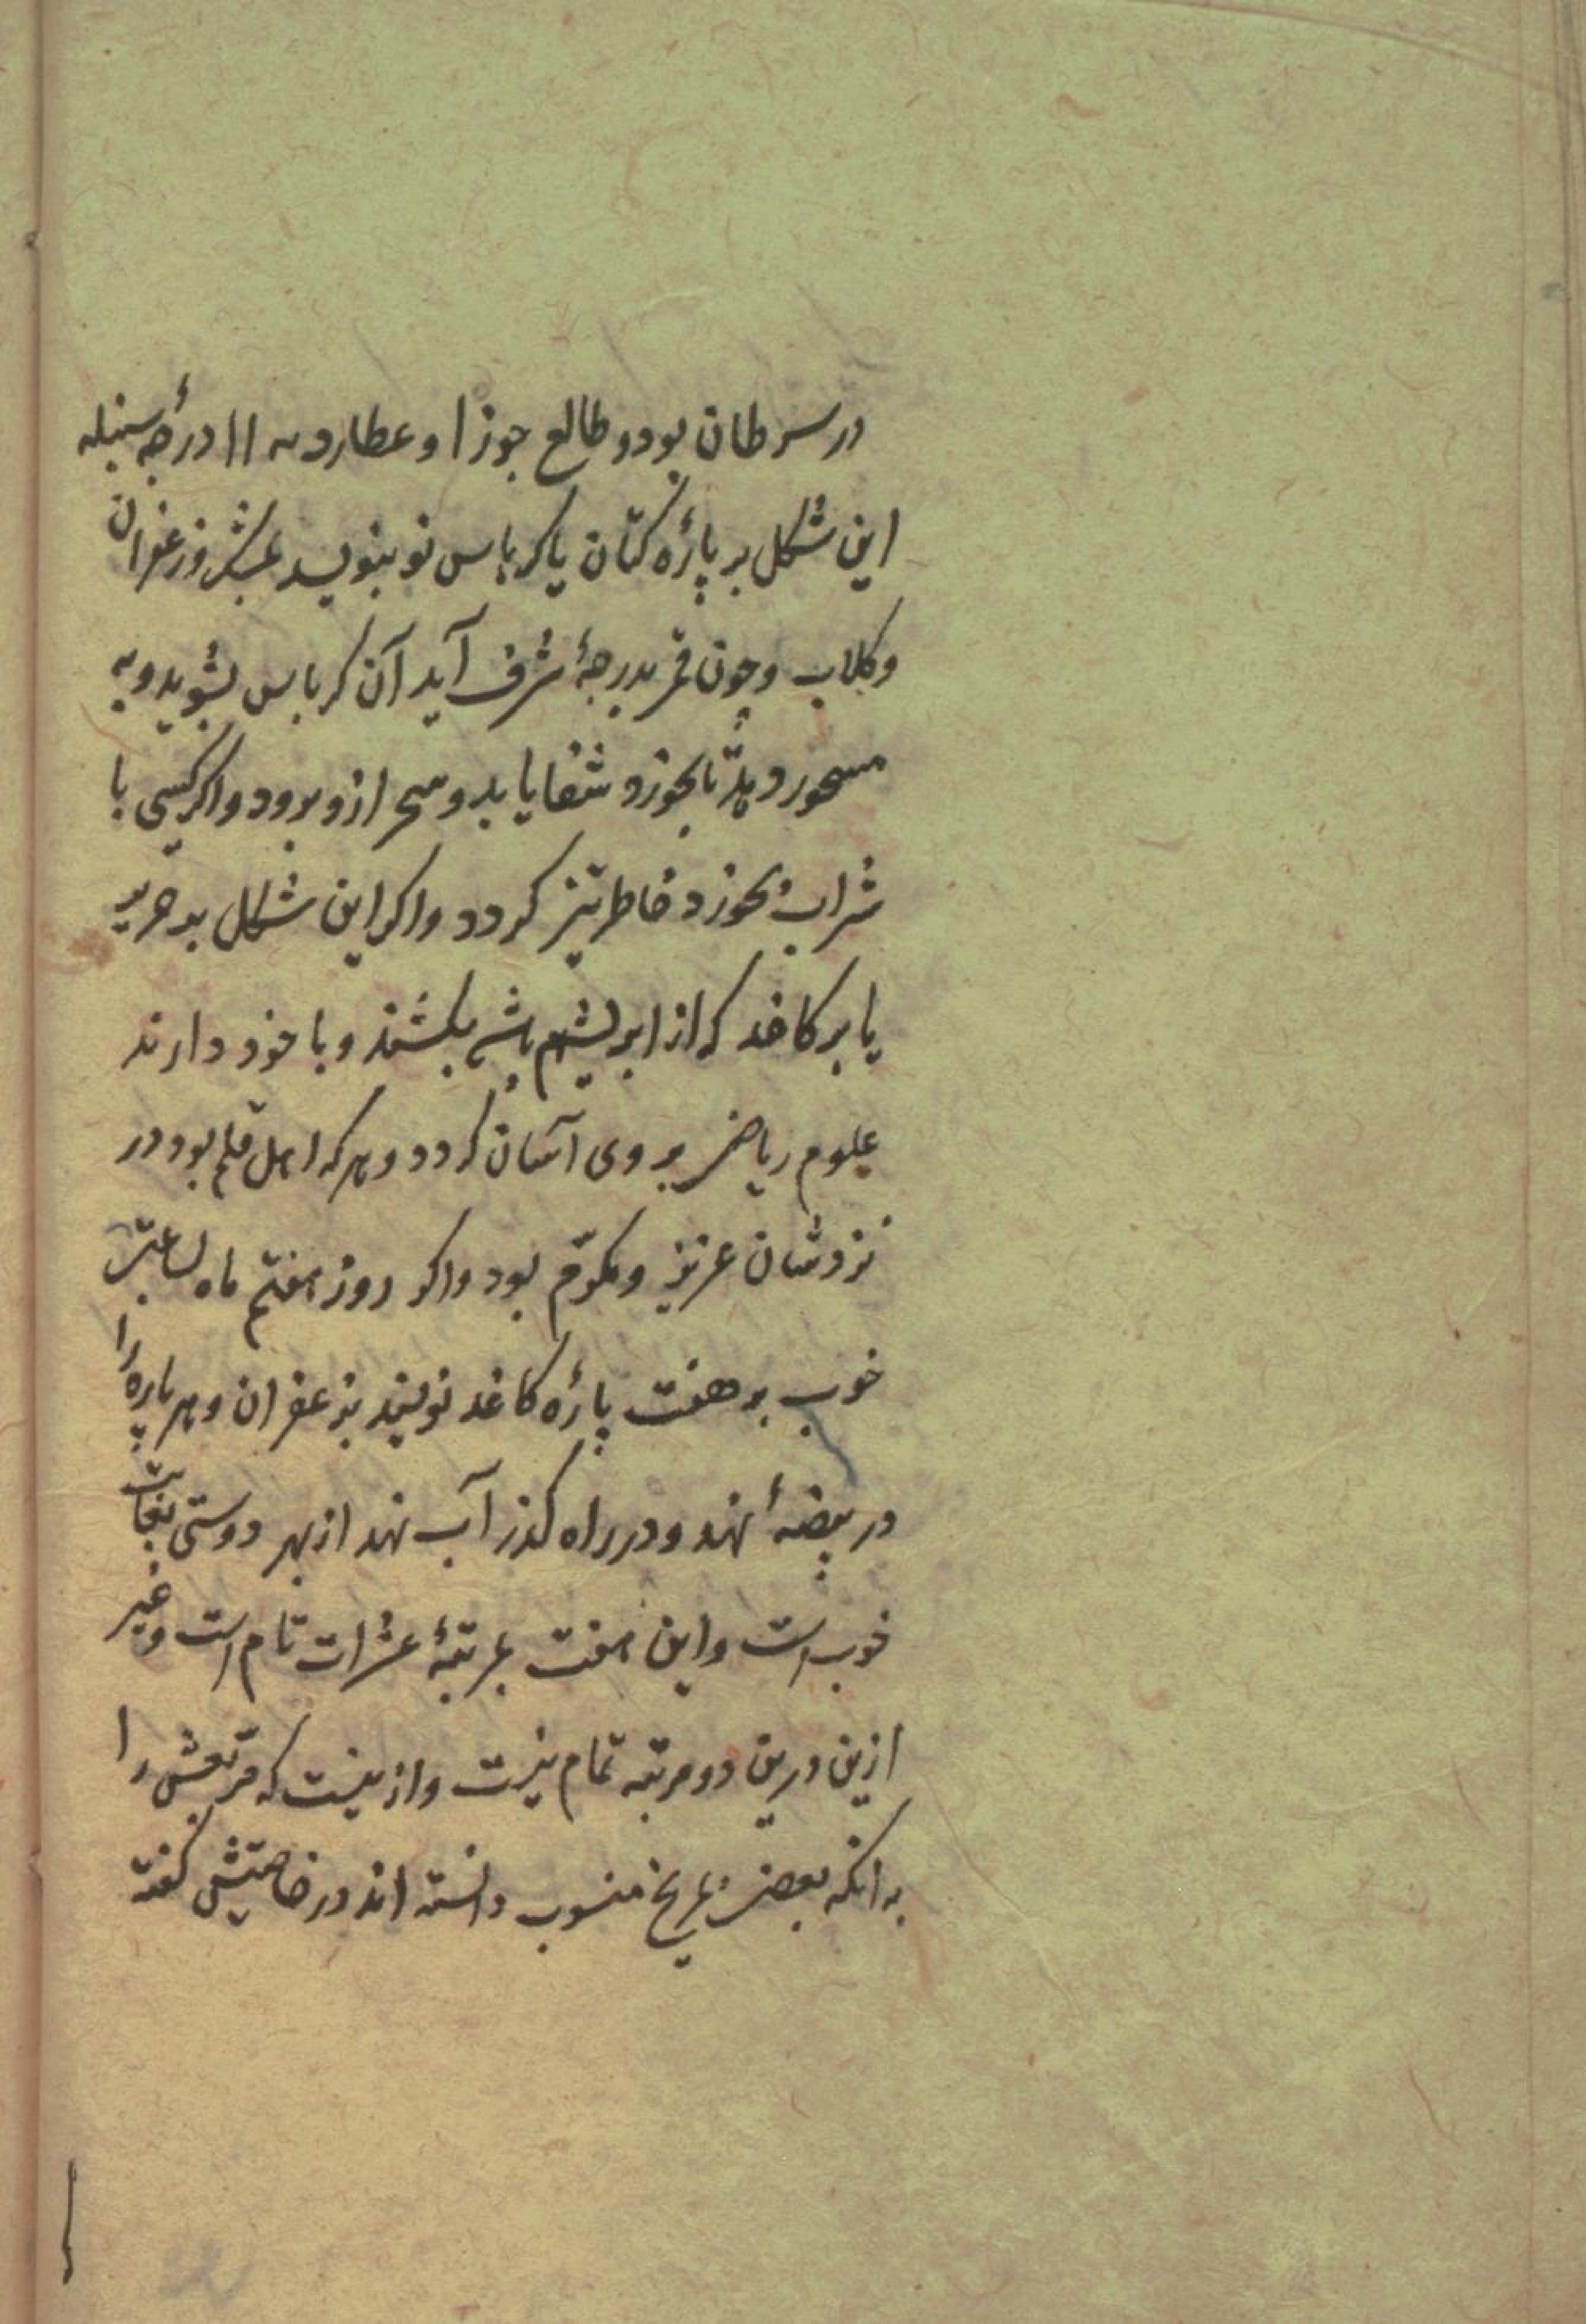 در سرطان بود و طالع جوزا و عطارد به ۱۱ درجهٔ سنبله
این شکل بر پارهٔ کتان یا کرباس نو بنویسد بمشک و زعفران
و کلاب و چون قمر بدرجهٔ شرف آید آن کرباس بشوید و به
مسحور دهد تا بخورد شفا یابد و سحر ازو برود و اگر کسی با
شراب بخورد خاطر تیز کردد و اکر این شکل بر حریر
یا بر کاغد که از ابریشم باشد بکشند و با خود دارند
علوم ریاضی بر وی آسان کردد و هر که اهل قلم بود در
نزدشان عزیز و مکرّم بود و اکر روز هفتم ماه بساعتی
خوب بر هفت پارهٔ کاغد نویسند بزعفران و هر پاره را
در بیضهٔ نهند و در راه کذر آب نهند از بهر دوستی بغایت
خوب است و این هفت بمرتبهٔ عشرات تام است و غیر
ازین درین دو مرتبه تمام نیست و ازینست که مربعش را
به انکه بعضی بمریخ منسوب دانسته اند در خاصیتش کفته